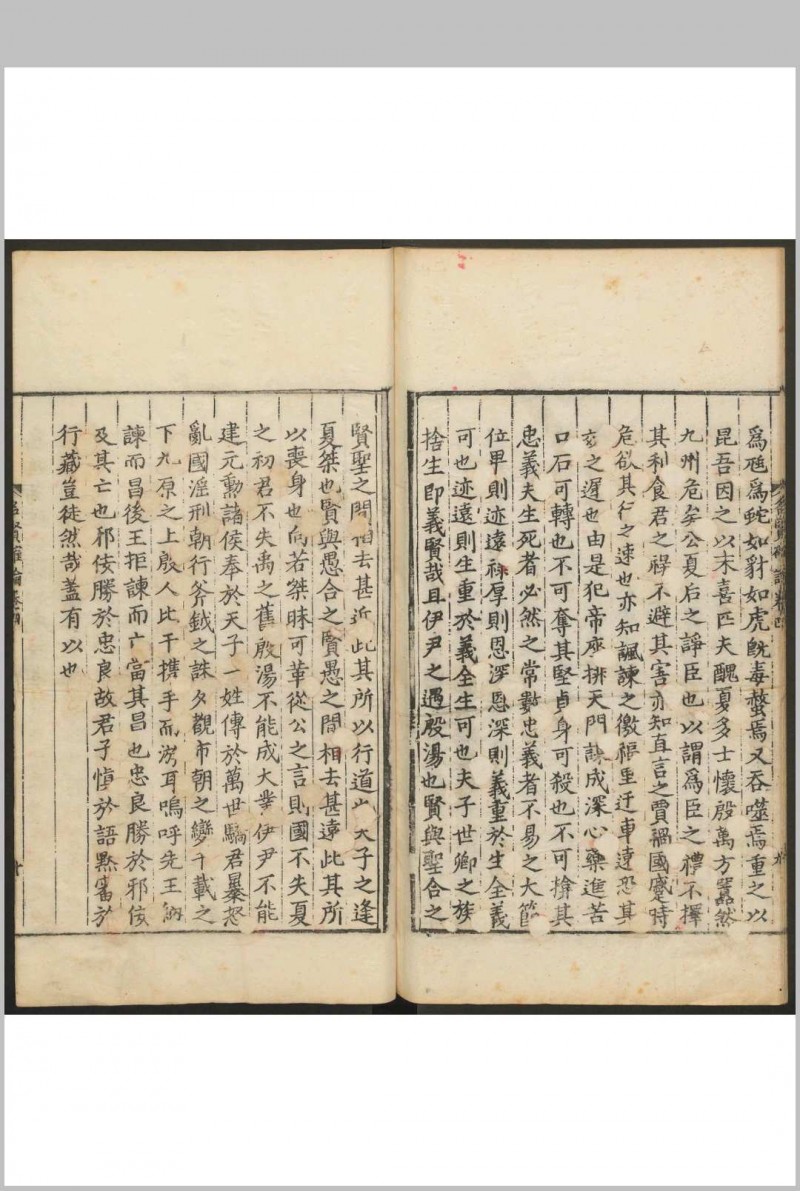 爲虺爲蛇如豺如虎旣毒螫焉又吞噬焉重之以
昆吾因之以末喜匹夫醜夏多士懷殷萬方嚚然
九州危矣公夏后之諍臣也以謂爲臣之禮不擇
其利食君之祿不避其害亦知直言之賈禍國蹙時
危欲其行之速也亦知諷諫之徼福里迂車遠恐其
言之遲也由是犯帝座排天門諫成深心藥進苦
口石可轉也不可奪其堅貞身可殺也不可揜其
忠義夫生死者必然之常數忠義者不易之大節
位畢則迹遠祿厚則恩深恩深則義重於生全義
可也迹遠則生重於義全生可也夫子世卿之族
捨生即義賢哉且伊尹之遇殷湯也賢與聖合之
賢聖之間相去甚近此其所以行道也夫子之逢
夏桀也賢與愚合之賢愚之間相去甚遠此其所
以喪身也向若桀昧可革從公之言則國不失夏
之初君不失禹之舊殷湯不能成大業伊尹不能
建元勳諸侯奉於天子一姓傳於萬世驕君暴怒
亂國淫刑朝行斧鉞之誅夕觀市朝之變千載之
下九原之上殷人比干攜手而游耳嗚呼先王納
諫而昌後王拒諫而亡當其昌也忠良勝於邪佞
及其亡也邪佞勝於忠良故君子愼於語黙審於
行藏豈徒然哉蓋有以也